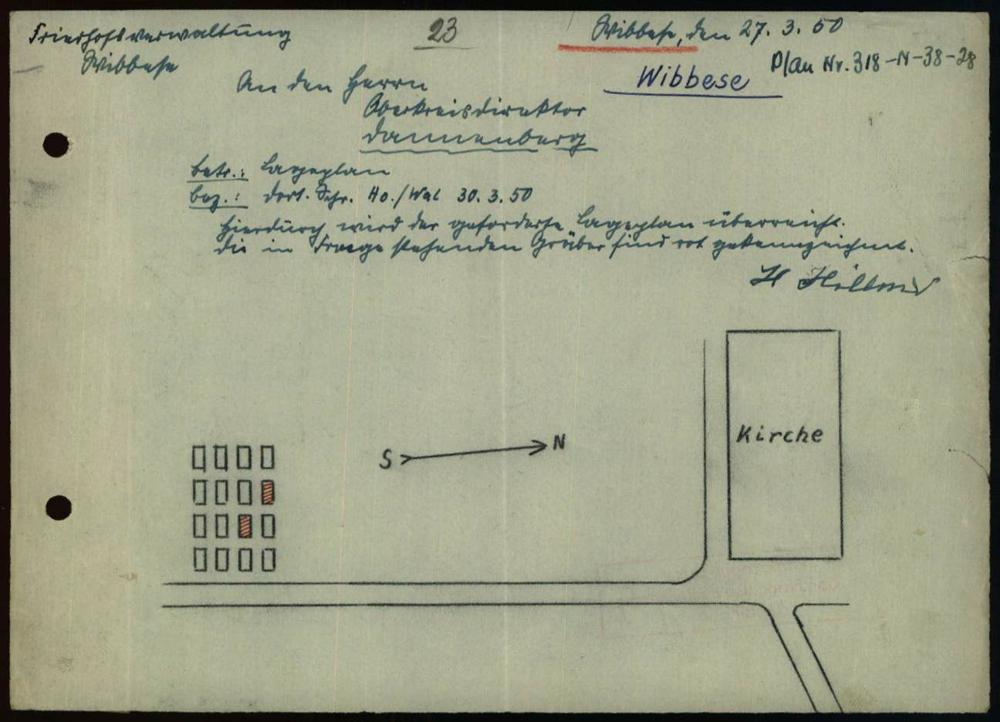 Friedhofsverwaltung
Wibbese
23
Wibbese, den 27. 3. 50
Wibbese
Plan Nr. 318-N-38-28
An den Herrn
Oberkreisdirektor
Dannenberg
betr.: Lageplan
bez.: dort. Schr. Ho./Wal 30.3.50
Hierdurch wird der geforderte Lageplan überreicht.
Die in Frage stehenden Gräber sind rot gekennzeichnet.
H
Kirche
S N